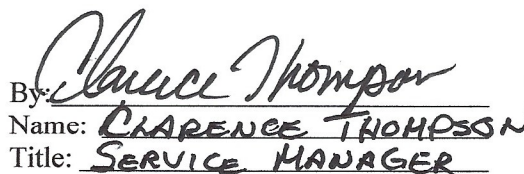 By: Clarence Thompson
Name: CLARENCE THOMPSON
Title: SERVICE MANAGER